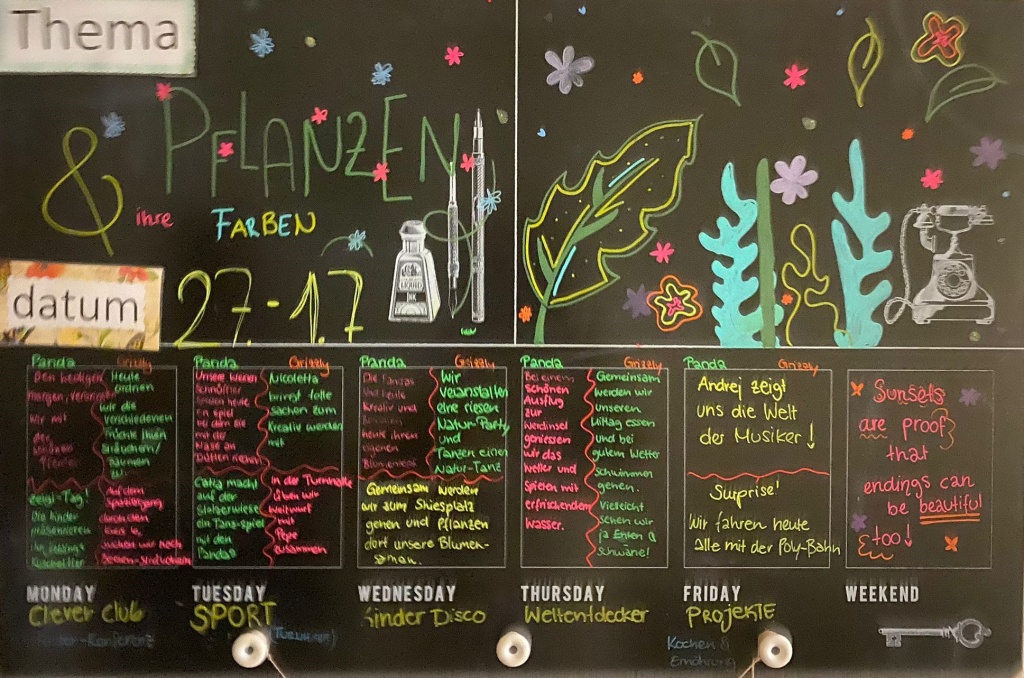 Thema
PFLANZEN
& ihre FARBEN
datum
27.-1.7
LIQUID
INK
Panda Grizzly
Heute
ordnen
wir die
verschiedenen
Früchte ihren
Sträuchern/
Bäumen
zu
Wir mit
der
Zeigl-Tag!
Die Kinder
präsentieren
ihr
Kuscheltier
Auf dem
durch den
Kreis 6,
suchen wir noch
Beeren-Sträucher
MONDAY
Clever Club
Kinder-Konferenz
Panda Grizzly
Unsere
ein Spiel
bei dem sie
mit der
Nase an
Düften riechen
Nicoletta
bringt tolle
Sachen zum
Kreativ werden
mit
Catia macht
auf der
ein Tanz-spiel
mit den
Pandas
In der Turnhalle
üben wir
Weitwurf
mit
Pepe
zusammen
TUESDAY
SPORT
(Turnhalle)
Panda Grizzly
Die Pandas
sind heute
kreativ und
heute ihren
eigenen
Wir
veranstalten
eine riesen
Natur-Party
und
Tanzen einen
Natur-Tanz
Gemeinsam werden
wir zum Shiesplatz
gehen und Pflanzen
dort unsere Blumen-
samen.
WEDNESDAY
Kinder Disco
Panda Grizzly
Bei einem
schönen
Ausflug
zur
Werdinsel
geniessen
wir das
Wetter und
Spielen mit
erfrischendem
Wasser.
Gemeinsam
werden wir
unseren
Mittag essen
und bei
gutem Wetter
schwimmen
gehen.
Vielleicht
sehen wir
ja Enten &
Schwäne!
THURSDAY
Weltentdecker
Panda Grizzly
Andrej zeigt
uns die Welt
der Musiker!
Surprise!
Wir fahren heute
alle mit der Poly-Bahn
FRIDAY
PROJEKTE
Kochen &
Ernährung
Sunsets
are proof
that
endings can
be beautiful
too!
WEEKEND